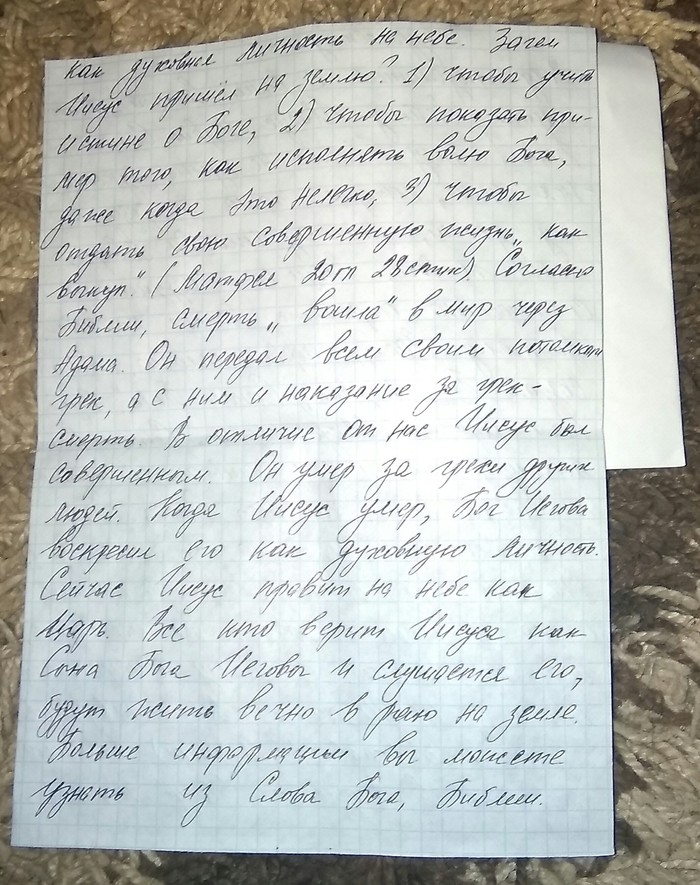 как духовная личность на небе. Зачем
Иисус пришёл на землю? 1) чтобы учить
истине о Боге, 2) чтобы показать при-
мер того, как исполнять волю Бога,
даже когда это нелегко, 3) чтобы
отдать свою совершенную жизнь „как
выкуп." (Матфея 20гл 28стих). Согласно
Библии, смерть „вошла" в мир через
Адама. Он передал всем своим потомкам
грех, а с ним и наказание за грех-
смерть. В отличие от нас Иисус был
совершенным. Он умер за грехи других
людей. Когда Иисус умер, Бог Иегова
воскресил его как духовную личность.
Сейчас Иисус правит на небе как
Царь. Все кто верит Иисуса как
Сына Бога Иеговы и слушается его,
будут жить вечно в раю на земле.
Больше информации вы можете
узнать из Слова Бога, Библии.